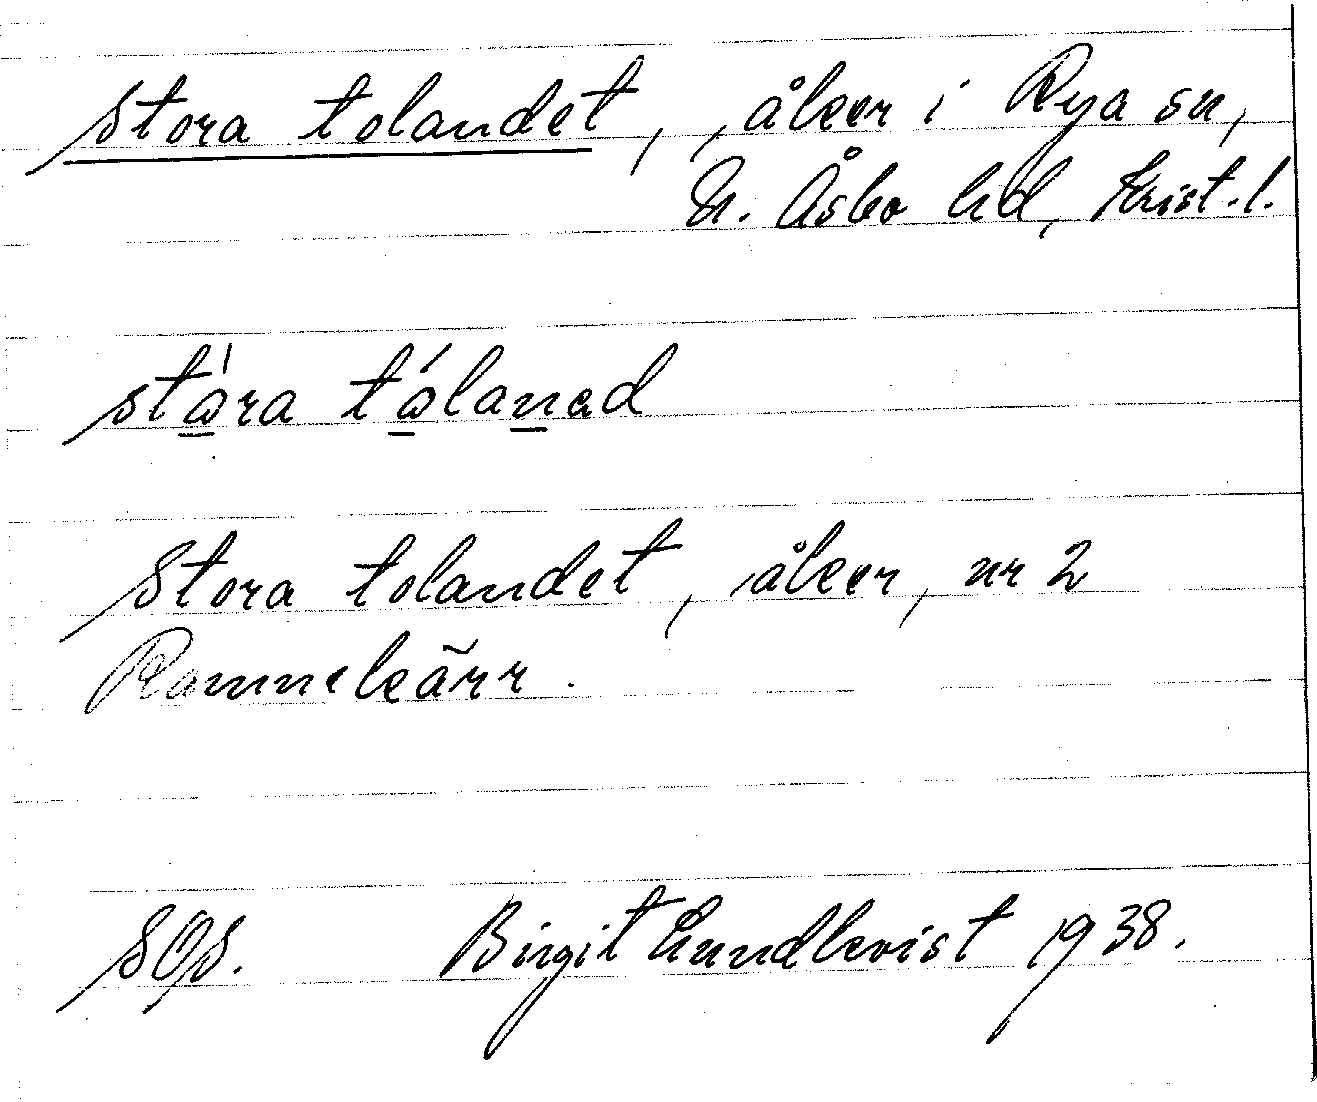 Stora tolandet, åker i Rya sn,
N. Åsbo hd, Krist. l.
stóra tólaned
Stora tolandet, åker, nr 2
Rammekärr.
SOS. Birgit Lundkvist 1938.